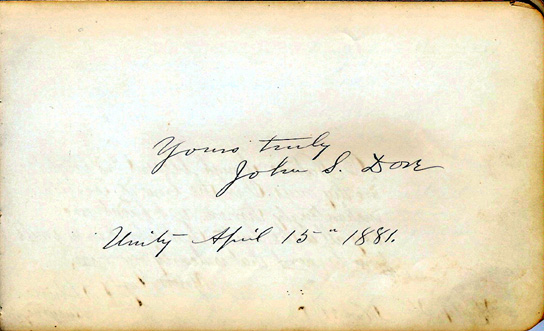 Yours truly
John S. Dore
Unity April 15" 1881.